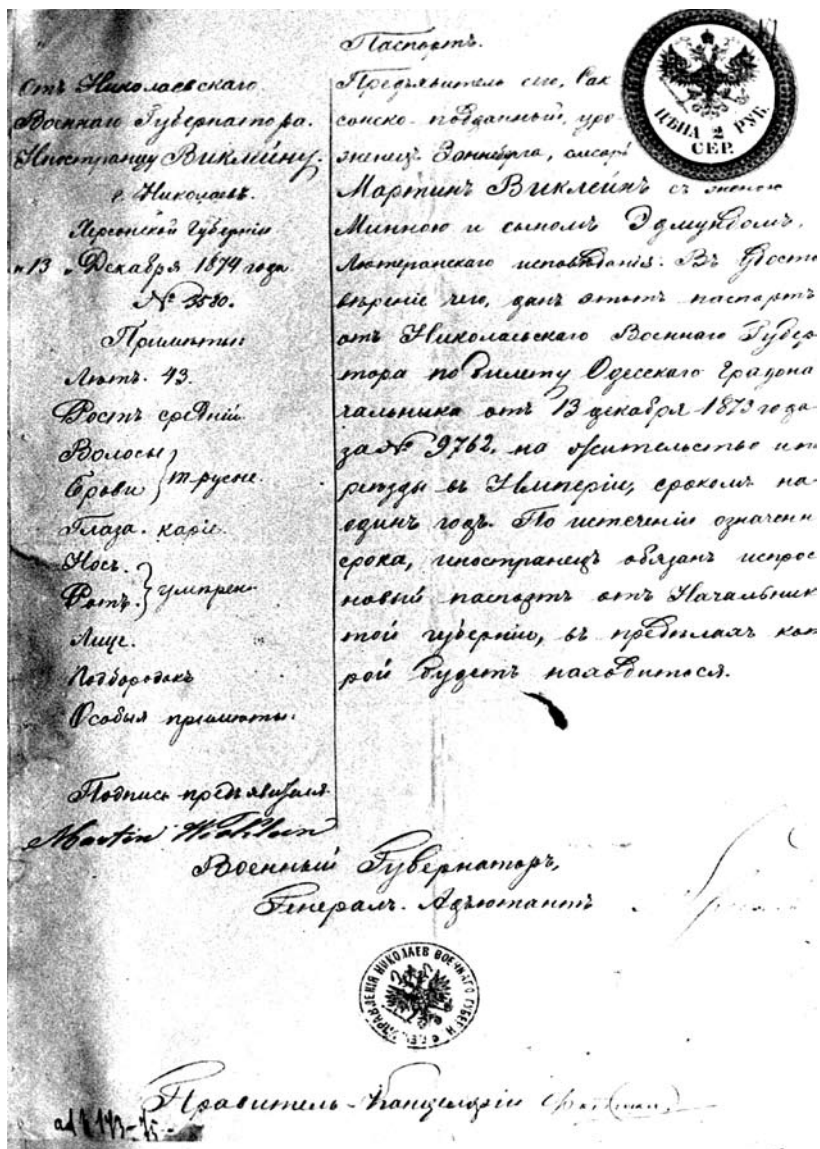 Паспортъ.
Отъ Николаевскаго
Военнаго Губернатора.
Иностранцу Виклейну.
г. Николаевъ.
Херсонской Губерніи
"13" Декабря 1874 года
№ 3580.
Примѣты:
Лѣтъ. 43.
Ростъ средній
Волосы
Брови } т. русые.
Глаза. каріе.
Носъ.
Ротъ. } умѣрен.
Лице.
Подбородокъ
Особыя примѣты:
Подпись предъявителя
Martin Wichlein
Предъявитель сего, Сак
сонско-подданный, уро-
женецъ Зоннеберга,
Мартинъ Виклейнъ съ женою
Минною и сыномъ Эдмундомъ,
Лютеранскаго исповѣданія. Въ удосто
вѣреніе чего, данъ этотъ паспортъ
отъ Николаевскаго Военнаго Губер
тора по билету Одесскаго Градона
чальника отъ 13 декабря 1873 года
за № 9762, на жительство и п
реѣзды въ Имперіи, срокомъ на
одинъ годъ. По истеченіи означенн
срока, иностранецъ обязанъ испрос
новый паспортъ отъ Начальник
той губерніи, въ предѣлахъ кот
рой будетъ находиться.
ЦѢНА 2 РУБ.
СЕР.
Военный Губернаторъ,
Генералъ-Адъютантъ
НИКОЛАЕВ ВОЕННАГО ГУБЕРН
Правитель-Канцеляріи